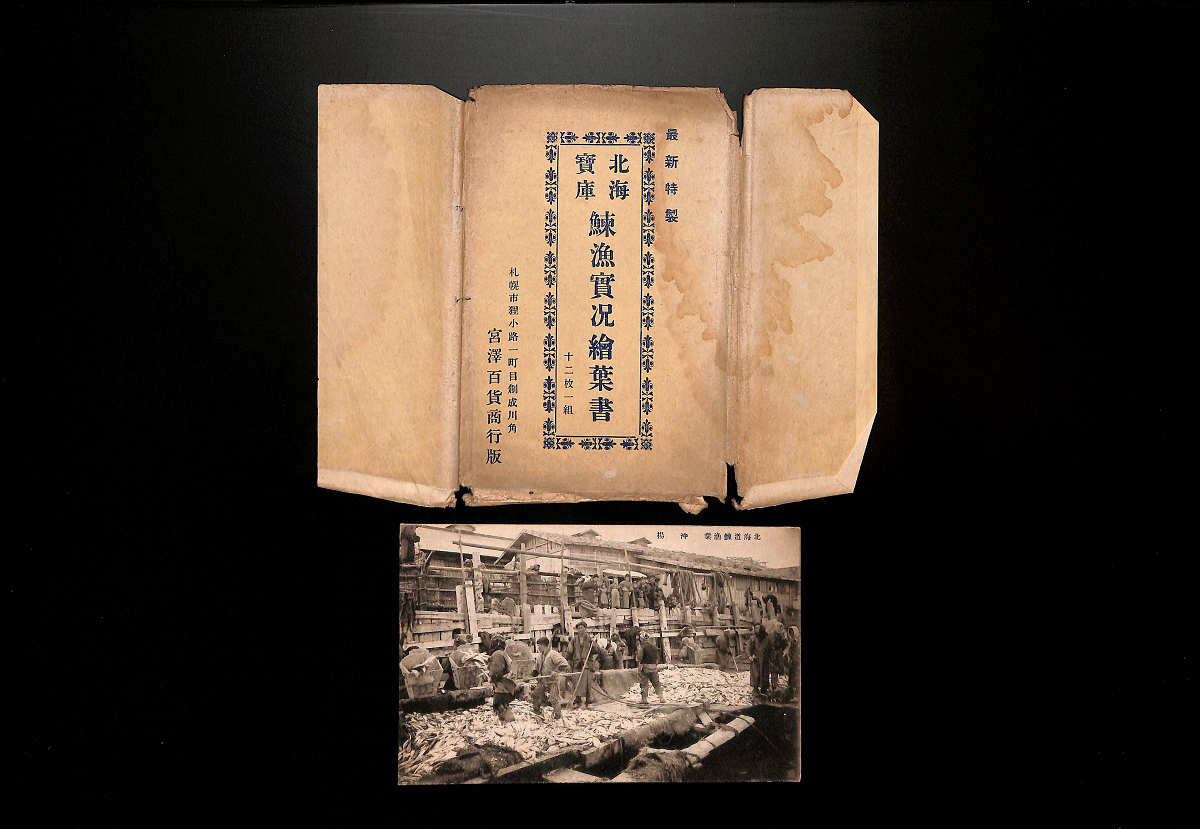 最新特製
北海
寶庫
鰊漁實況繪葉書
十二枚一組
札幌市狸小路一町目創成川角
宮澤百貨商行版
北海道鰊漁業 沖揚